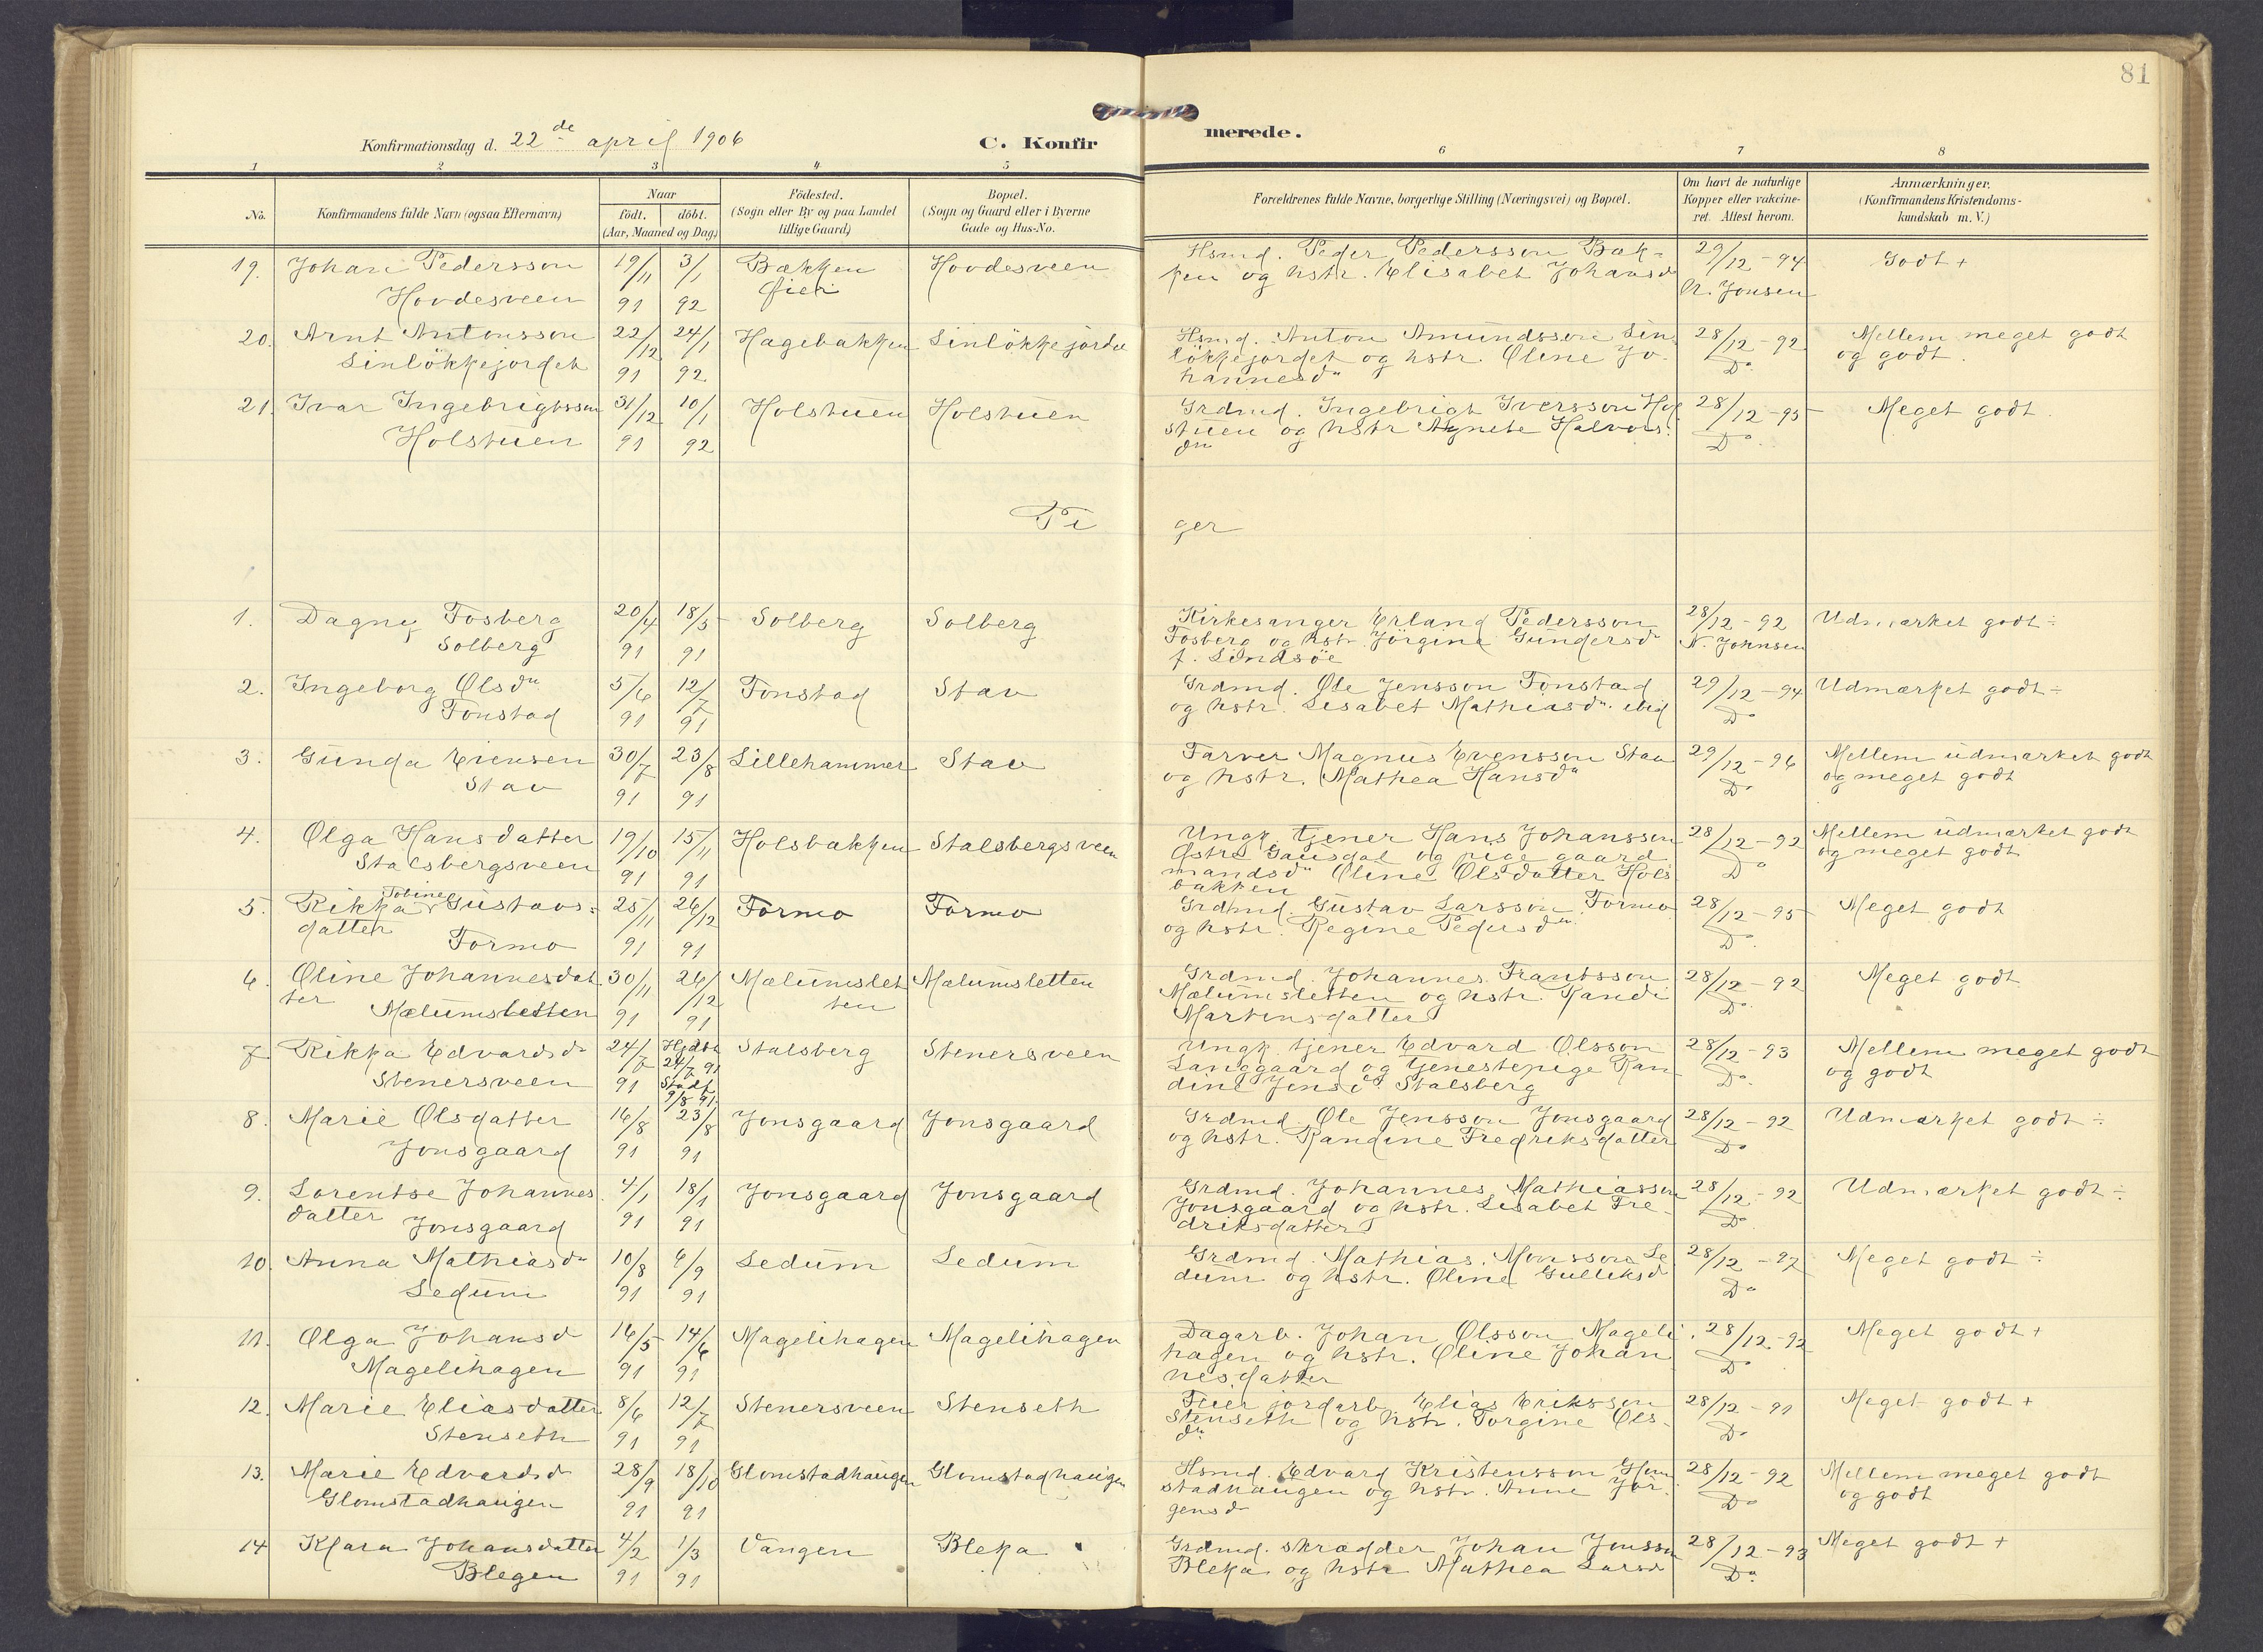 81
Konfirmationsdag d. 22de april 1906
C. Konfir
merede.
1 2 3 4 5 6 7 8
No.
Konfirmandens fulde Navn (ogsaa Efternavn)
Naar
födt. döbt.
(Aar, Maaned og Dag)
Födested.
(Sogn eller By og paa Landet
tillige Gaard)
Bopæl.
(Sogn og Gaard eller i Byerne
Gade og Hus-No.
Forældrenes fulde Navne, borgerlige Stilling (Næringsvei) og Bopæl.
Om havt de naturlige
Kopper eller vakcine-
ret. Attest herom.
Anmærkninger.
(Konfirmandens Kristendoms-
kundskab m. V.)
19. Johan Pedersson 19/11 3/1 Bækken Hovdesveen Hsmd. Peder Pedersson Bæk- 29/12-94 Godt +
Hovdesveen 91 92 Øier ken og hstr. Elisabet Johansd N. Jonsen
20. Arnt Antonsson 22/12 24/1 Hagebakken Linlökkejordet Hsmd. Anton Amundsson Lin 28/12-92 Mellem meget godt
Linlökkejordet 91 92 lökkejordet og hstr. Oline Jo- Do og godt.
hannesdtr
21. Ivar Ingebrigtsson 31/12 10/1 Holstuen Holstuen Grdmd. Ingebrigt Iversson Hol 28/12-95 Meget godt.
Holstuen 91 92 stuen og hstr Agnete Halvors- Do
dtr
Pi ger
1. Dagny Fosberg 20/4 18/5 Solberg Solberg Kirkesanger Erland Pedersson 28/12-92 Udmærket godt ÷
Solberg 91 91 Fosberg og hstr. Jörgine Gundersdr N. Johnsen
f. Lindsöe
2. Ingeborg Olsdtr 5/6 12/7 Fonstad Stav Grdmd. Ole Jensson Fonstad 29/12-94 Udmærket godt ÷
Fonstad 91 91 og hstr. Lisabet Mathiasdtr. ibid Do
3. Gunda Evensen 30/7 23/8 Lillehammer Stav Farver Magnus Evensson Stav 29/12-96 Mellem udmærket godt
Stav 91 91 og hstr. Mathea Hansdtr Do og meget godt
4. Olga Hansdatter 19/10 15/11 Holsbakken Stalsbergsveen Ungk. tjener Hans Johansson 28/12-92 Mellem udmærket godt
Stalsbergsveen 91 91 Østre Gausdal og pige gaard Do og meget godt
mandsdtr Oline Olsdatter Hols
bakken
5. Rikka Tobine Gustavs- 25/11 26/12 Formo Formo Grdmd. Gustav Larsson Formo 28/12-95 Meget godt
datter Formo 91 91 og hstr. Regine Pedersdtr. Do
6. Oline Johannesdat 30/11 26/12 Mælumslet Mælumsletten Grdmd. Johannes Frantsson 28/12-92 Meget godt
ter Mælumsletten 91 91 ten Mælumsletten og hstr. Randi Do
Martinsdatter
7 Rikka Edvardsdr 24/7 Hjdbt Stalsberg Stenersveen Ungk. tjener Edvard Olsson 28/12-93 Mellem meget godt
Stenersveen 91 24/7 91 Langgaard og tjenestepige Ran- Do og godt
Stadf. 9/8 91. dine Jensd Stalsberg
8. Marie Olsdatter 16/8 23/8 Jonsgaard Jonsgaard Grdmd. Ole Jensson Jonsgaard 28/12-92 Udmærket godt ÷
Jonsgaard 91 91 og hstr. Randine Fredriksdatter Do
9. Lorentse Johannes 4/1 18/1 Jonsgaard Jonsgaard Grdmd. Johannes Mathiasson 28/12-92 Udmærket godt ÷
datter Jonsgaard 91 91 Jonsgaard og hstr. Lisabet Fre- Do
driksdatter
10. Anna Mathiasdr 10/8 6/9 Ledum Ledum Grdmd. Mathias Monsson Le 28/12-97 Meget godt ÷
Ledum 91 91 dum og hstr. Oline Gulliksd Do
11. Olga Johansd 16/5 14/6 Magelihagen Magelihagen Dagarb. Johan Olsson Mageli 28/12-92 Meget godt +
Magelihagen 91 91 hagen og hstr. Oline Johan Do
nesdatter
12. Marie Eliasdatter 8/6 12/7 Stenersveen Stenseth Feier jordarb. Elias Eriksson 28/12-91 Meget godt +
Stenseth 91 91 Stenseth og hstr. Torgine Ols- Do
dtr
13. Marie Edvardsdr 28/9 18/10 Glomstadhaugen Glomstadhaugen Hsmd. Edvard Kristensson Glom 28/12-92 Mellem meget godt
Glomstadhaugen 91 91 stadhaugen og hstr. Anne Jör- Do og godt
gensdr
14 Klara Johansdatter 4/2 1/3 Vangen Bleka Grdmd. skrædder Johan Jonsson 28/12-93 Meget godt +
Blegen 91 91 Bleka og hstr Mathea Larsdr Do